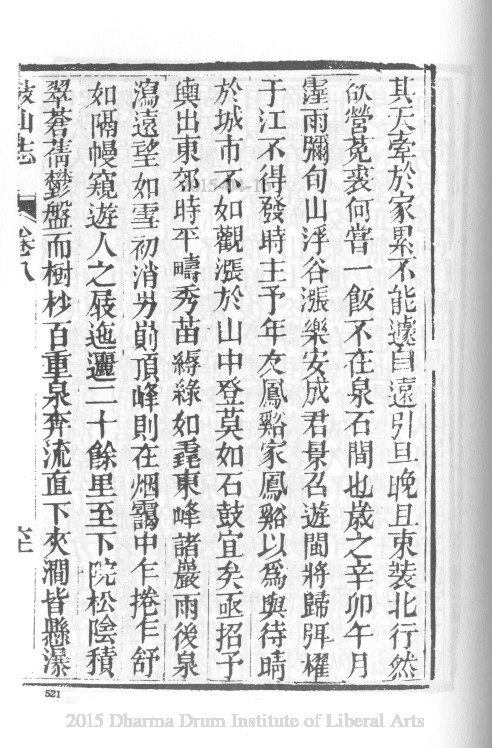 其天牽於家累不能遽自遠引旦晚且束裝北行然
欲營菟裘何嘗一飯不在泉石間也歲之辛卯午月
霪雨彌旬山浮谷漲樂安成君景召遊閩將歸弭櫂
于江不得發時主予年友鳳谿家鳳谿以為與待晴
於城市不如觀漲於山中登莫如石鼓宜矣亟招予
輿出東郊時平疇秀苗縟綠如毳東峰諸巖雨後泉
瀉遠望如雪初消屴崱頂峰則在烟靄中乍捲乍舒
如隔幔窺遊人之屐迤邐二十餘里至下院松陰積
翠蒼蒨鬱盤而樹杪百重泉奔流直下夾澗皆懸瀑
鼓山志 卷八
521
2015 Dharma Drum Institute of Liberal Arts